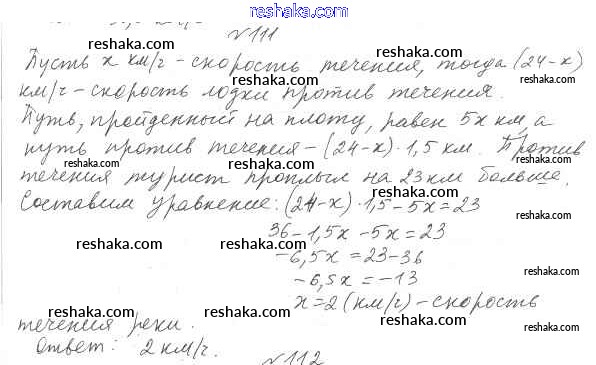 www.reshaka.com
№111
reshaka.com reshaka.com reshaka.com
Пусть x км/г - скорость течения, тогда (24-x)
км/г - скорость лодки против течения.
reshaka.com reshaka.com reshaka.com
Путь, пройденный на плоту, равен 5x км, а
путь против течения - (24-x)·1,5 км. Против
reshaka.com reshaka.com reshaka.com
течения турист проплыл на 23 км больше.
Составим уравнение: (24-x)·1,5-5x=23
reshaka.com reshaka.com reshaka.com
36-1,5x-5x=23
-6,5x=23-36
-6,5x=-13
x=2 (км/г) - скорость
reshaka.com reshaka.com reshaka.com
течения реки.
Ответ: 2 км/г.
reshaka.com reshaka.com reshaka.com
№112